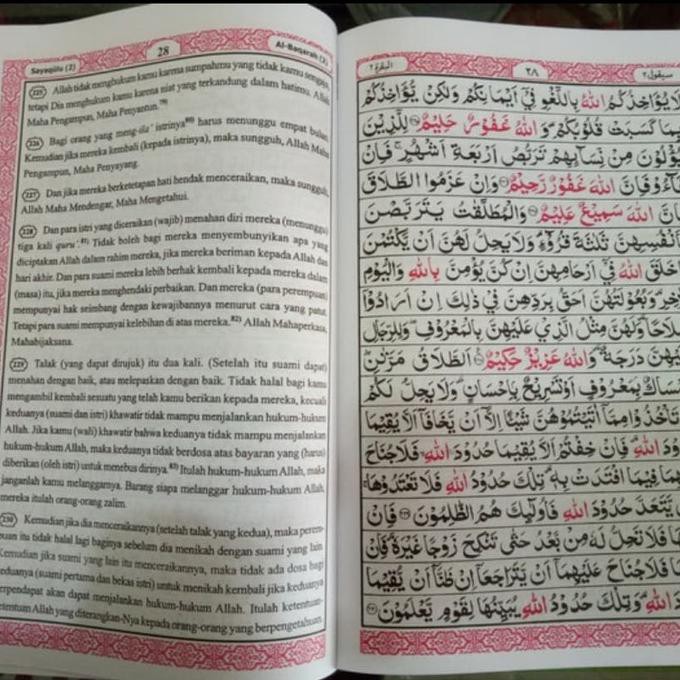 Sayaqūlu (2)
28
Al-Baqarah (2)
(225) Allah tidak menghukum kamu karena sumpahmu yang tidak kamu sengaja,
tetapi Dia menghukum kamu karena niat yang terkandung dalam hatimu. Allah
Maha Pengampun, Maha Penyantun.
(226) Bagi orang yang meng-ila' istrinya harus menunggu empat bulan.
Kemudian jika mereka kembali (kepada istrinya), maka sungguh, Allah Maha
Pengampun, Maha Penyayang.
(227) Dan jika mereka berketetapan hati hendak menceraikan, maka sungguh,
Allah Maha Mendengar, Maha Mengetahui.
(228) Dan para istri yang diceraikan (wajib) menahan diri mereka (menunggu)
tiga kali quru'.⁸¹⁾ Tidak boleh bagi mereka menyembunyikan apa yang
diciptakan Allah dalam rahim mereka, jika mereka beriman kepada Allah dan
hari akhir. Dan para suami mereka lebih berhak kembali kepada mereka dalam
(masa) itu, jika mereka menghendaki perbaikan. Dan mereka (para perempuan)
mempunyai hak seimbang dengan kewajibannya menurut cara yang patut.
Tetapi para suami mempunyai kelebihan di atas mereka.⁸²⁾ Allah Mahaperkasa,
Mahabijaksana.
(229) Talak (yang dapat dirujuk) itu dua kali. (Setelah itu suami dapat)
menahan dengan baik, atau melepaskan dengan baik. Tidak halal bagi kamu
mengambil kembali sesuatu yang telah kamu berikan kepada mereka, kecuali
keduanya (suami dan istri) khawatir tidak mampu menjalankan hukum-hukum
Allah. Jika kamu (wali) khawatir bahwa keduanya tidak mampu menjalankan
hukum-hukum Allah, maka keduanya tidak berdosa atas bayaran yang (harus)
diberikan (oleh istri) untuk menebus dirinya.⁸³⁾ Itulah hukum-hukum Allah, maka
janganlah kamu melanggarnya. Barang siapa melanggar hukum-hukum Allah,
mereka itulah orang-orang zalim.
(230) Kemudian jika dia menceraikannya (setelah talak yang kedua), maka perem-
puan itu tidak halal lagi baginya sebelum dia menikah dengan suami yang lain.
Kemudian jika suami yang lain itu menceraikannya, maka tidak ada dosa bagi
keduanya (suami pertama dan bekas istri) untuk menikah kembali jika keduanya
berpendapat akan dapat menjalankan hukum-hukum Allah. Itulah ketentuan-
ketentuan Allah yang diterangkan-Nya kepada orang-orang yang berpengetahuan.
سيقول ٢
٢٨
البقرة ٢
لَا يُؤَاخِذُكُمُ اللهُ بِاللَّغْوِ فِيْٓ اَيْمَانِكُمْ وَلٰكِنْ يُّؤَاخِذُكُمْ
بِمَا كَسَبَتْ قُلُوْبُكُمْ ۗ وَاللهُ غَفُوْرٌ حَلِيْمٌ ٢٢٥ لِلَّذِيْنَ
يُؤْلُوْنَ مِنْ نِّسَاۤىِٕهِمْ تَرَبُّصُ اَرْبَعَةِ اَشْهُرٍ ۚ فَاِنْ
فَاۤءُوْ فَاِنَّ اللهَ غَفُوْرٌ رَّحِيْمٌ ٢٢٦ وَاِنْ عَزَمُوا الطَّلَاقَ
فَاِنَّ اللهَ سَمِيْعٌ عَلِيْمٌ ٢٢٧ وَالْمُطَلَّقٰتُ يَتَرَبَّصْنَ
بِاَنْفُسِهِنَّ ثَلٰثَةَ قُرُوْۤءٍ ۗ وَلَا يَحِلُّ لَهُنَّ اَنْ يَّكْتُمْنَ
مَا خَلَقَ اللهُ فِيْٓ اَرْحَامِهِنَّ اِنْ كُنَّ يُؤْمِنَّ بِاللهِ وَالْيَوْمِ
الْاٰخِرِ ۗ وَبُعُوْلَتُهُنَّ اَحَقُّ بِرَدِّهِنَّ فِيْ ذٰلِكَ اِنْ اَرَادُوْٓا
اِصْلَاحًا ۗ وَلَهُنَّ مِثْلُ الَّذِيْ عَلَيْهِنَّ بِالْمَعْرُوْفِ ۖ وَلِلرِّجَالِ
عَلَيْهِنَّ دَرَجَةٌ ۗ وَاللهُ عَزِيْزٌ حَكِيْمٌ ٢٢٨ اَلطَّلَاقُ مَرَّتٰنِ ۖ
فَاِمْسَاكٌۢ بِمَعْرُوْفٍ اَوْ تَسْرِيْحٌۢ بِاِحْسَانٍ ۗ وَلَا يَحِلُّ لَكُمْ
اَنْ تَأْخُذُوْا مِمَّآ اٰتَيْتُمُوْهُنَّ شَيْـًٔا اِلَّآ اَنْ يَّخَافَآ اَلَّا يُقِيْمَا
حُدُوْدَ اللهِ ۗ فَاِنْ خِفْتُمْ اَلَّا يُقِيْمَا حُدُوْدَ اللهِ ۙ فَلَا جُنَاحَ
عَلَيْهِمَا فِيْمَا افْتَدَتْ بِهٖ ۗ تِلْكَ حُدُوْدُ اللهِ فَلَا تَعْتَدُوْهَا ۚ
وَمَنْ يَّتَعَدَّ حُدُوْدَ اللهِ فَاُولٰۤىِٕكَ هُمُ الظّٰلِمُوْنَ ٢٢٩ فَاِنْ
طَلَّقَهَا فَلَا تَحِلُّ لَهٗ مِنْۢ بَعْدُ حَتّٰى تَنْكِحَ زَوْجًا غَيْرَهٗ ۗ فَاِنْ
طَلَّقَهَا فَلَا جُنَاحَ عَلَيْهِمَآ اَنْ يَّتَرَاجَعَآ اِنْ ظَنَّآ اَنْ يُّقِيْمَا
حُدُوْدَ اللهِ ۗ وَتِلْكَ حُدُوْدُ اللهِ يُبَيِّنُهَا لِقَوْمٍ يَّعْلَمُوْنَ ٢٣٠